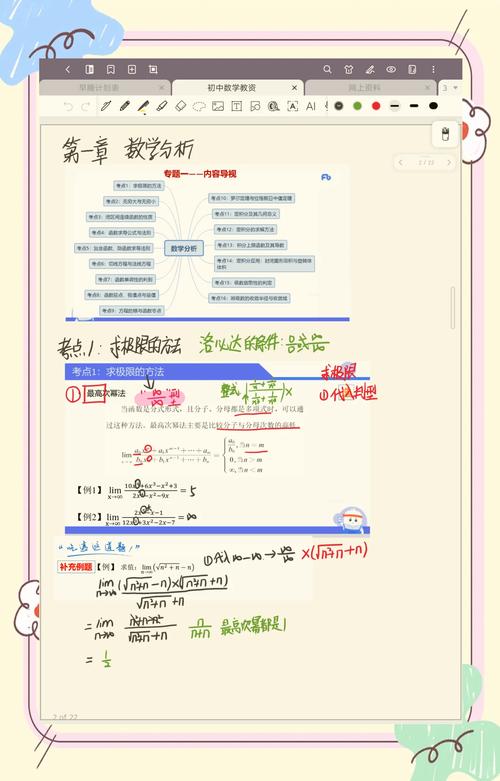 早睡计划表 × 初中数学教资 × 网上资料 × 3
2 / 22
第一章 数学分析
专题一——内容导视
考点1：求极限的方法
考点2：无穷大与无穷小
考点3：闭区间连续函数的性质
考点4：函数求导公式与法则
考点5：复合函数、隐函数求导法则
考点6：切线方程与法线方程
考点7：函数单调性的判别
考点8：函数极点、极值点与最值
考点9：方程的根与函数零点
数学分析
考点10：罗尔定理与拉格朗日中值定理
考点11：定积分及其几何意义
考点12：定积分的求解方法
考点13：积分上限函数及其导数
考点14：定积分应用：封闭图形面积与旋转体体积
考点15：级数敛散性的判定
考点16：幂级数的收敛半径与收敛域
考点1：求极限的方法 洛必达的条件：0/0或∞/∞
考点1：求极限的方法
求极限
① 代入判型
① 最高次幂法 ∞/∞型 整式
当函数是分式形式，且分子、分母都是多项式时，可以通
过这种方法。最高次幂法主要是比较分子与分母次数的高低。
lim x→∞ (a₀xᵐ+a₁xᵐ⁻¹+⋯+aₘ)/(b₀xⁿ+b₁xⁿ⁻¹+⋯+bₙ) = { a₀/b₀, 当n = m
0, 当n > m
∞, 当n < m
【例1】lim x→∞ (10x³+6x²−x²+3)/(2x³−x²−9x) = 5
【例2】lim x→∞ (2x⁴−x−1)/(12x³+3x²−2x−7) = ∞
“吃透这道题！”
补充例题 【例】 求值：lim n→∞ (√(n²+n)−n) ①代入∞−∞→∞/∞ ×(√(n²+n)+n)
lim n→∞ (√(n²+n)−n)×(√(n²+n)+n) / (√(n²+n)+n)
= lim n→∞ (n²+n−n²)/(√(n²+n)+n) n/(n+n) 最高次幂都是1
= 1/2
2 of 22